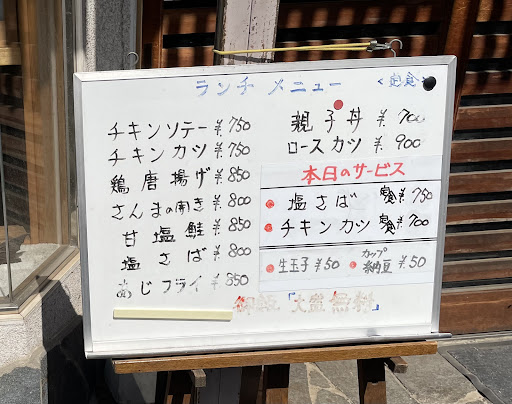 ランチ メニュー <定食>
チキンソテー ¥.750
チキンカツ ¥.750
鶏唐揚げ ¥.850
さんまの開き ¥.800
甘塩鮭 ¥.850
塩さば ¥.800
あじフライ ¥.850
親子丼 ¥.700
ロースカツ ¥.900
本日のサービス
塩さば 定食 ¥.750
チキンカツ 定食 ¥.700
生玉子 ¥50
カップ納豆 ¥.50
御飯「大盛無料」